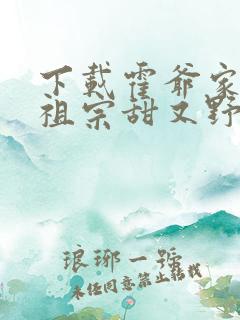 下载霍爷家
祖宗甜又野
琅琊一號
未经同意禁止转载